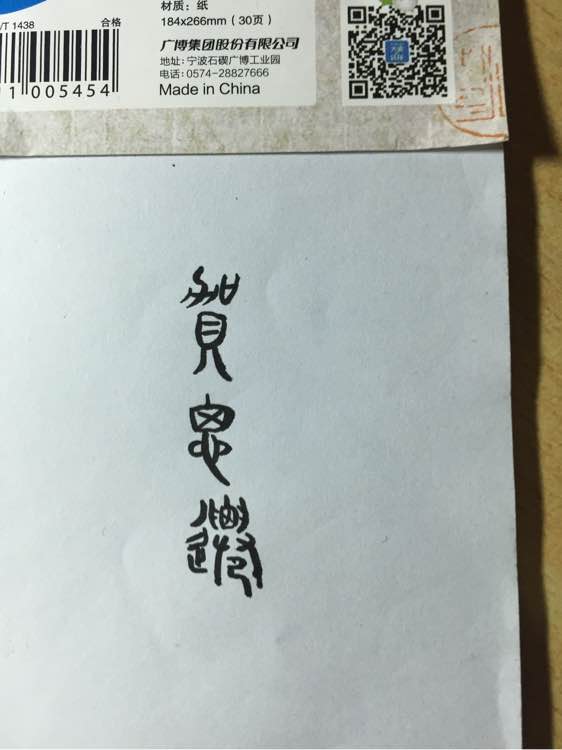 /T 1438 合格
1 005454
材质：纸
184x266mm（30页）
广博集团股份有限公司
地址：宁波石碶广博工业园
电话：0574-28827666
Made in China
賀思遷